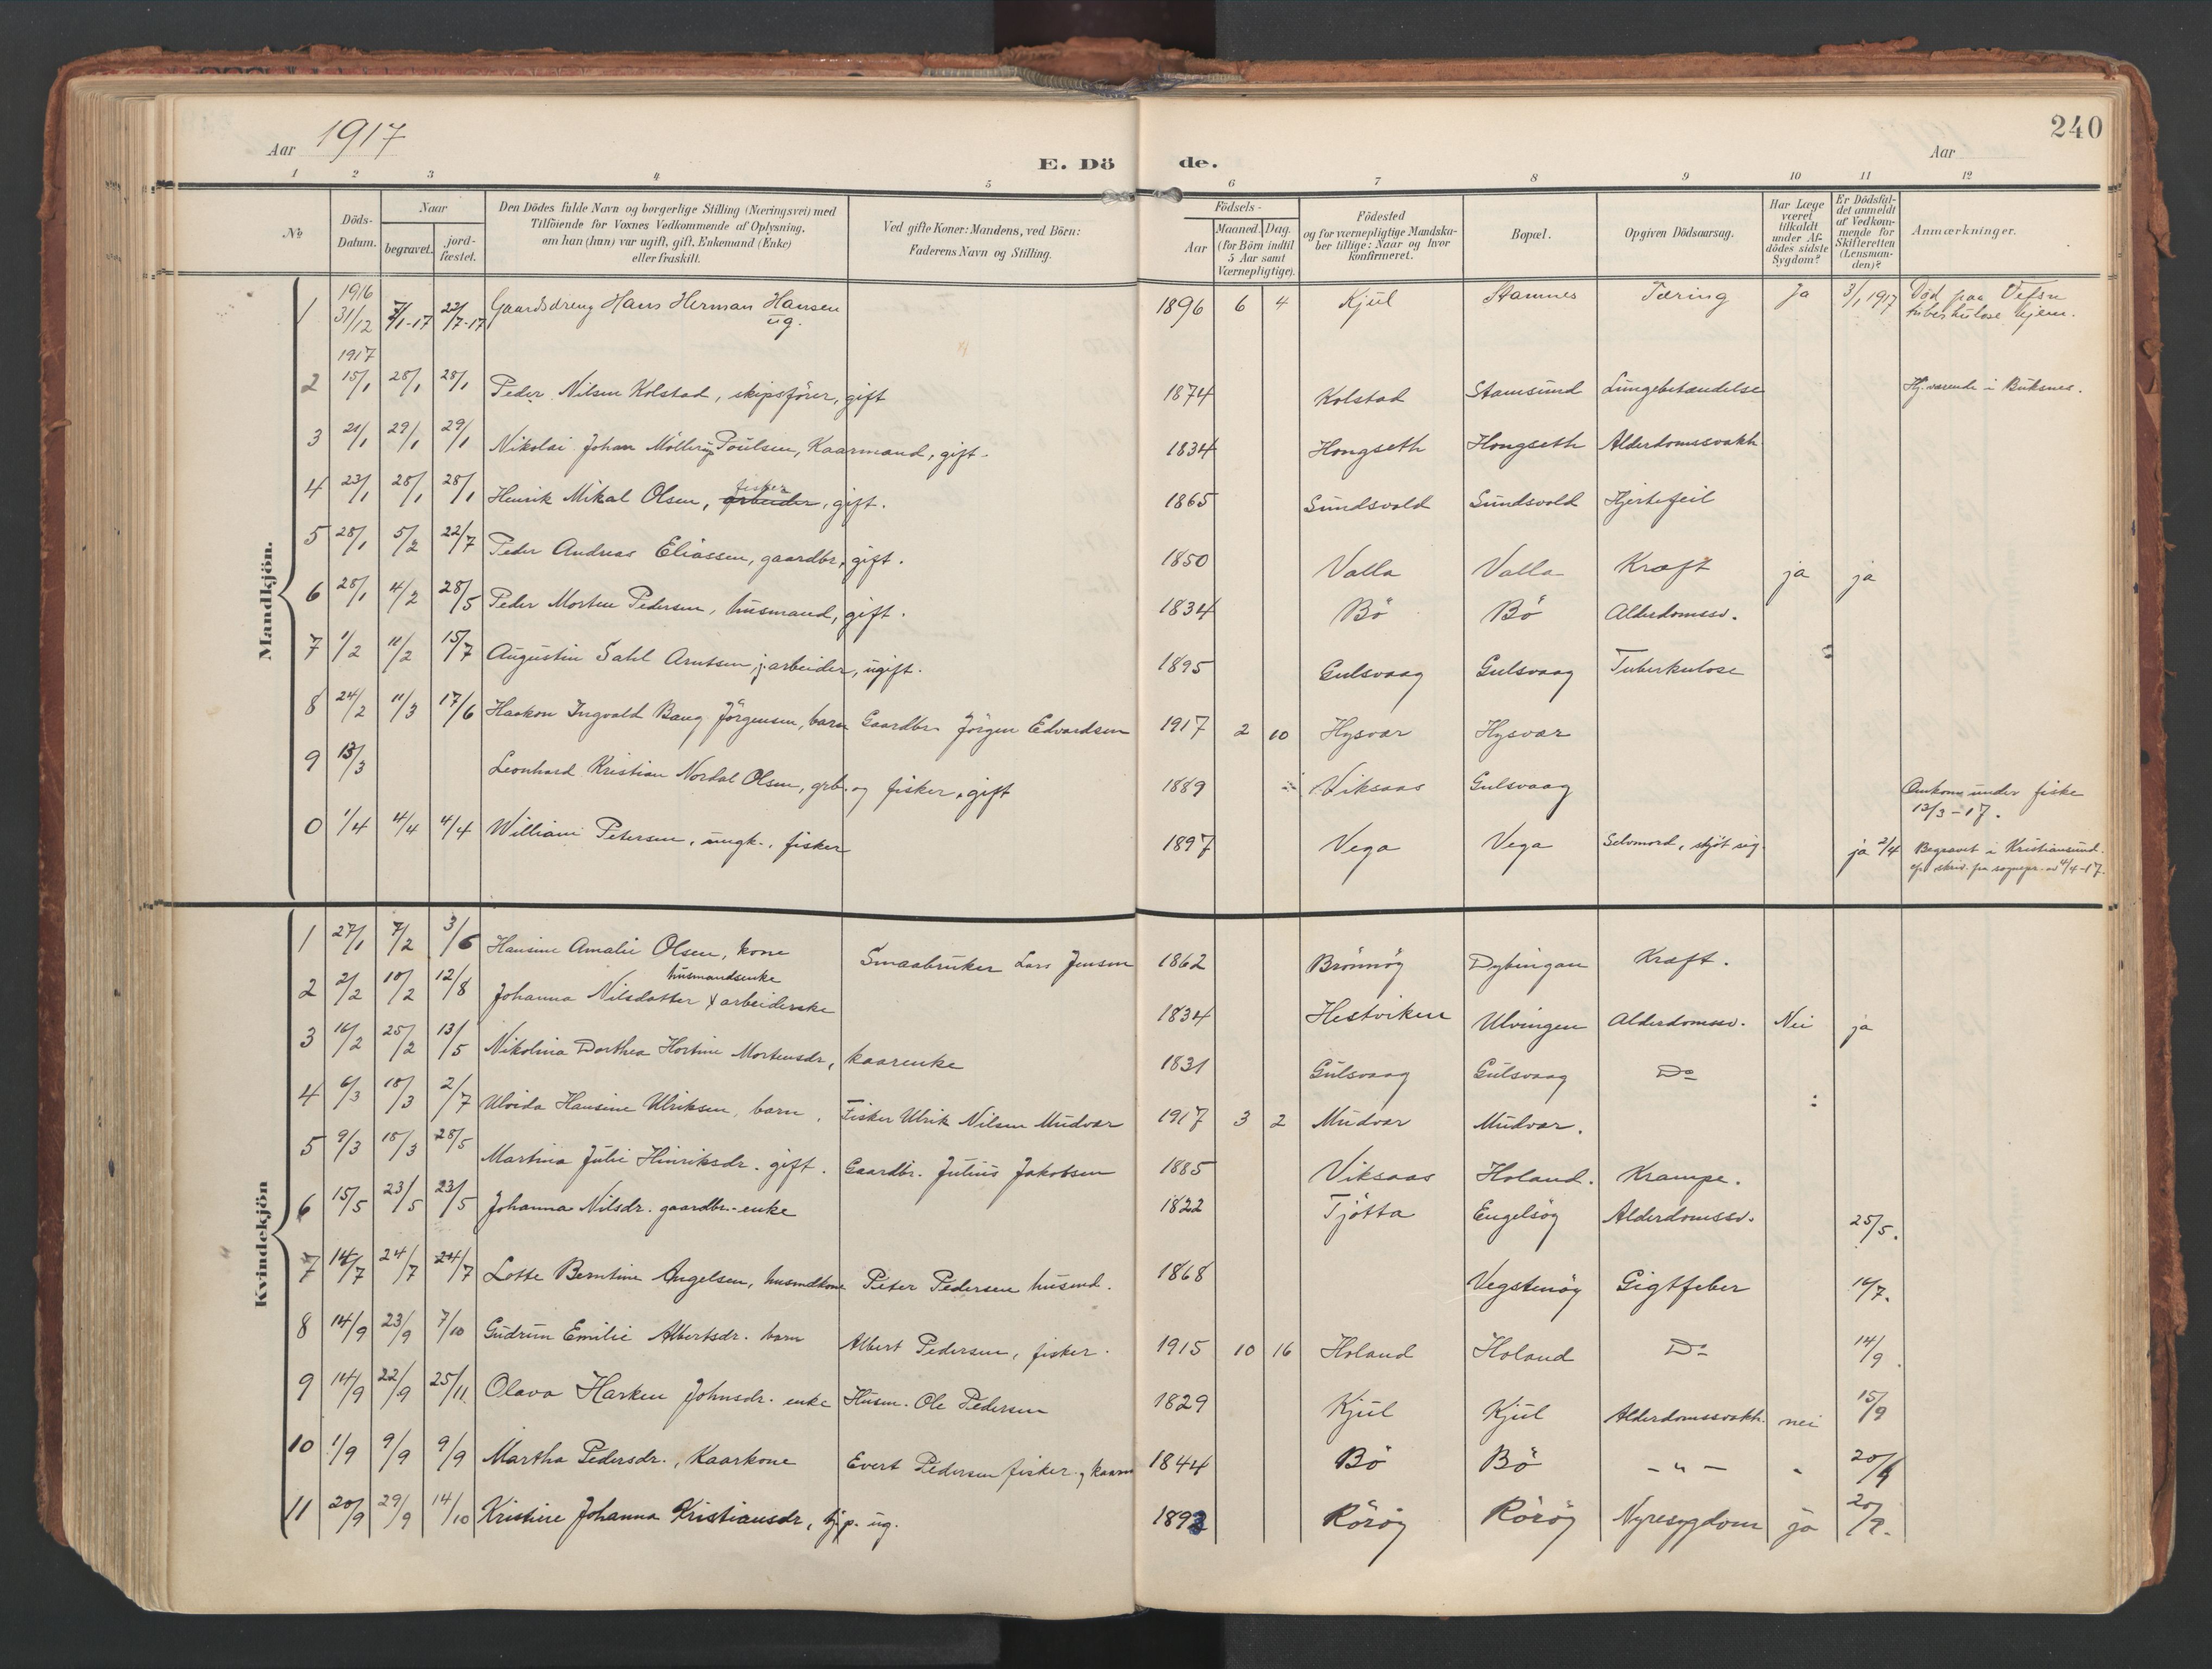 240
Aar 1917
Aar
E. Dö de.
1 2 3 4 5 6 7 8 9 10 11 12
No
Döds-Datum.
Naar
begravet.
jord-fæstet.
Den Dödes fulde Navn og borgerlige Stilling (Næringsvei) med
Tilföiende for Voxnes Vedkommende af Oplysning,
om han (hun) var ugift, gift, Enkemand (Enke)
eller fraskilt.
Ved gifte Koner: Mandens, ved Börn:
Faderens Navn og Stilling.
Födsels-
Aar
Maaned. Dag.
(for Börn indtil
5 Aar samt
Værnepligtige).
Födested
og for værnepligtige Mandska-
ber tillige: Naar og hvor
konfirmeret.
Bopæl.
Opgiven Dödsaarsag.
Har Læge
været
tilkaldt
under Af-
dödes sidste
Sygdom?
Er Dödsfal-
det anmeldt
af Vedkom-
mende for
Skifteretten
(Lensman-
den)?
Anmærkninger.
Mandkjön.
1 1916 31/12 7/1-17 22/7-17 Gaardsdreng Hans Herman Hansen ug. 1896 6 4 Kjul Stamnes Tæring Ja 3/1 1917 Död paa Vefsn tuberkulose hjem.
1917
2 15/1 28/1 28/1 Peder Nilsen Kolstad, skipsförer, gift 1874 Kolstad Stamsund Lungebetændelse Hj.værende i Buksnes.
3 21/1 29/1 29/1 Nikolai Johan Möllerup Poulsen, Kaarmand, gift. 1834 Hongseth Hongseth Alderdomssvakh
4 23/1 28/1 28/1 Henrik Mikal Olsen, arbeider fisker, gift. 1865 Sundsvold Sundsvold Hjertefeil
5 28/1 5/2 22/7 Peder Andreas Eliassen, gaardbr, gift. 1850 Valla Valla Kræft ja ja
6 28/1 4/2 28/5 Peder Morten Pedersen, husmand, gift. 1834 Bö Bö Alderdomssv.
7 1/2 11/2 15/7 Augustin Sahl Arntsen, j.arbeider, ugift. 1895 Gulsvaag Gulsvaag Tuberkulose
8 24/2 11/3 17/6 Haakon Ingvald Baug Jörgensen, barn Gaardbr. Jörgen Edvardsen 1917 2 10 Hysvær Hysvær
9 13/3 Leonhard Kristian Nordal Olsen, grb. og fisker, gift 1889 Viksaas Gulsvaag Omkom under fiske 13/3-17.
0 1/4 4/4 4/4 William Petersen, ungk., fisker 1897 Vega Vega Selvmord, skjöt sig. ja 2/4 Begravet i Kristiansund. skriv. fra sognepr. av 4/4-17.
Kvindekjön
1 27/1 7/2 3/6 Hansine Amalie Olsen, kone Smaabruker Lars Jensen 1862 Brönnöy Dybingan Kræft.
2 2/2 10/2 12/8 Johanna Nilsdatter husmandsenke arbeiderske 1834 Hestviken Ulvingen Alderdomssv. Nei ja
3 16/2 25/2 13/5 Nikolina Dorthea Hortine Mortensdr, kaarenke 1831 Gulsvaag Gulsvaag Do
4 6/3 18/3 2/7 Ulvida Hansine Ulriksen, barn, Fisker Ulrik Nilsen Mudvær 1917 3 2 Mudvær Mudvær.
5 9/3 18/3 28/5 Martina Julie Hinriksdr. gift. Gaardbr. Julius Jakobsen 1885 Viksaas Holand. Krampe.
6 15/5 23/5 23/5 Johanna Nilsdr. gaardbr.-enke 1822 Tjötta Engelsöy Alderdomssv. 25/5.
7 14/7 24/7 24/7 Lotte Berntine Angelsen, husmdkone Peter Pedersen husmd. 1868 Vegstenöy Gigtfeber 16/7.
8 14/9 23/9 7/10 Gudrun Emilie Albertsdr. barn Albert Pedersen, fisker. 1915 10 16 Holand Holand Do 14/9.
9 14/9 22/9 25/11 Olava Harken Johnsdr. enke Husm. Ole Pedersen 1829 Kjul Kjul Alderdomssvakh. nei 15/9
10 1/9 9/9 9/9 Martha Pedersdr., Kaarkone Evert Pedersen fisker og kaarm 1844 Bö Bö - " - 20/9
11 20/9 29/9 14/10 Kristine Johanna Kristiansdr, tj.p. ug. 1893 Röröy Röröy Nyresygdom ja 20/9.